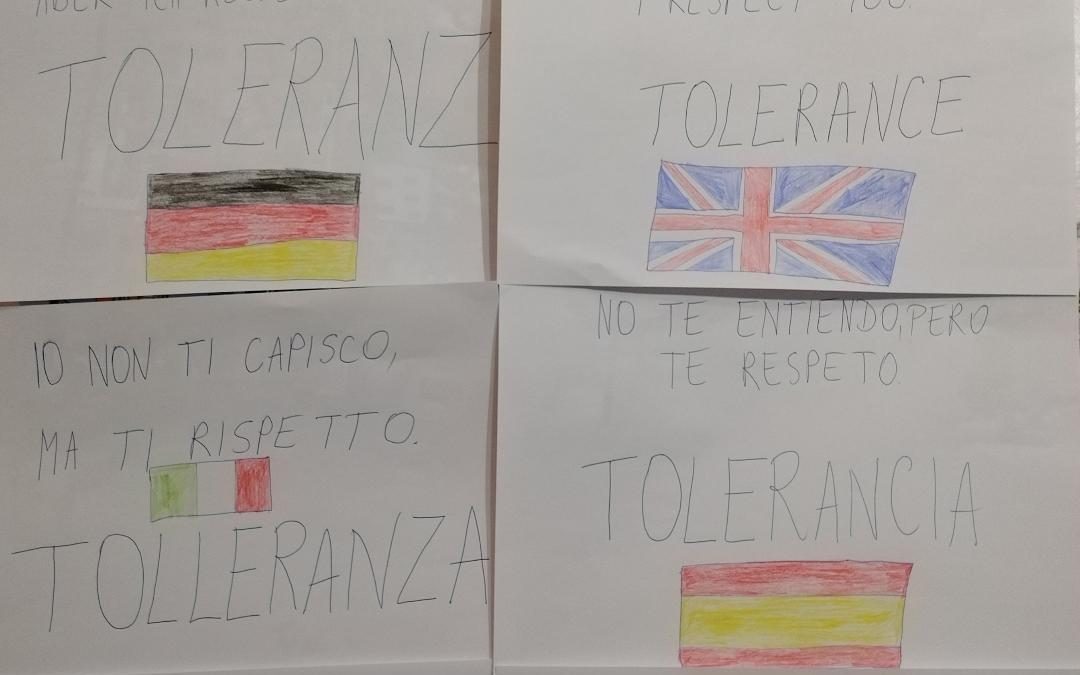 ABER ICH
TOLERANZ
I RESPECT YOU.
TOLERANCE
IO NON TI CAPISCO,
MA TI RISPETTO.
TOLLERANZA
NO TE ENTIENDO,PERO
TE RESPETO.
TOLERANCIA